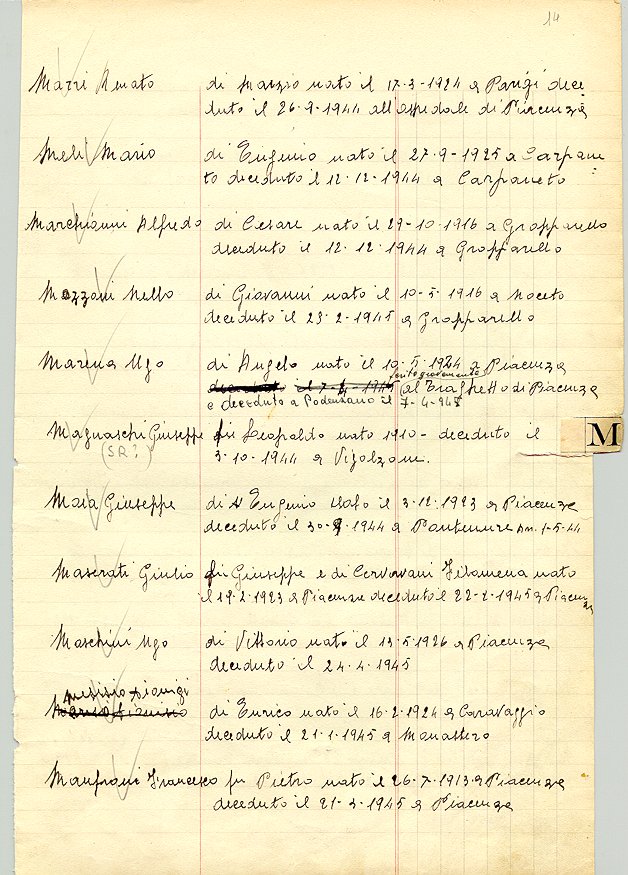 14
Mazzi Renato di Marzio nato il 17-3-1924 a Parigi dece
duto il 26-9-1944 all'ospedale di Piacenza
Meli Mario di Eugenio nato il 27-9-1925 a Carpane
to deceduto il 12-12-1944 a Carpaneto
Marchionni Alfredo di Cesare nato il 29-10-1916 a Gropparello
deceduto il 12-12-1944 a Gropparello
Mozzoni Nello di Giovanni nato il 10-5-1916 a Noceto
deceduto il 23-2-1945 a Gropparello
Marina Ugo di Angelo nato il 10-5-1924 a Piacenza
ferito gravemente
deceduto il 7-4-1945 (al Traghetto di Piacenza
e deceduto a Podenzano il 7-4-945
Magnaschi Giuseppe fu Leopoldo nato 1910 - deceduto il
M
(SR?) 3-10-1944 a Vigolzone.
Maia Giuseppe di Eugenio nato il 3-12-1923 a Piacenza
deceduto il 30-9-1944 a Pontenure 1-5-44
Maserati Giulio fu Giuseppe e di Cervovani Filomena nato
il 19-2-1923 a Piacenza deceduto il 22-2-1945 a Piacenza
Maschini Ugo di Vittorio nato il 13-5-1926 a Piacenza
deceduto il 24-4-1945
Dionigi
di Enrico nato il 16-2-1924 a Caravaggio
deceduto il 21-1-1945 a Monastero
Manfroni Francesco fu Pietro nato il 26-7-1913 a Piacenza
deceduto il 21-3-1945 a Piacenza